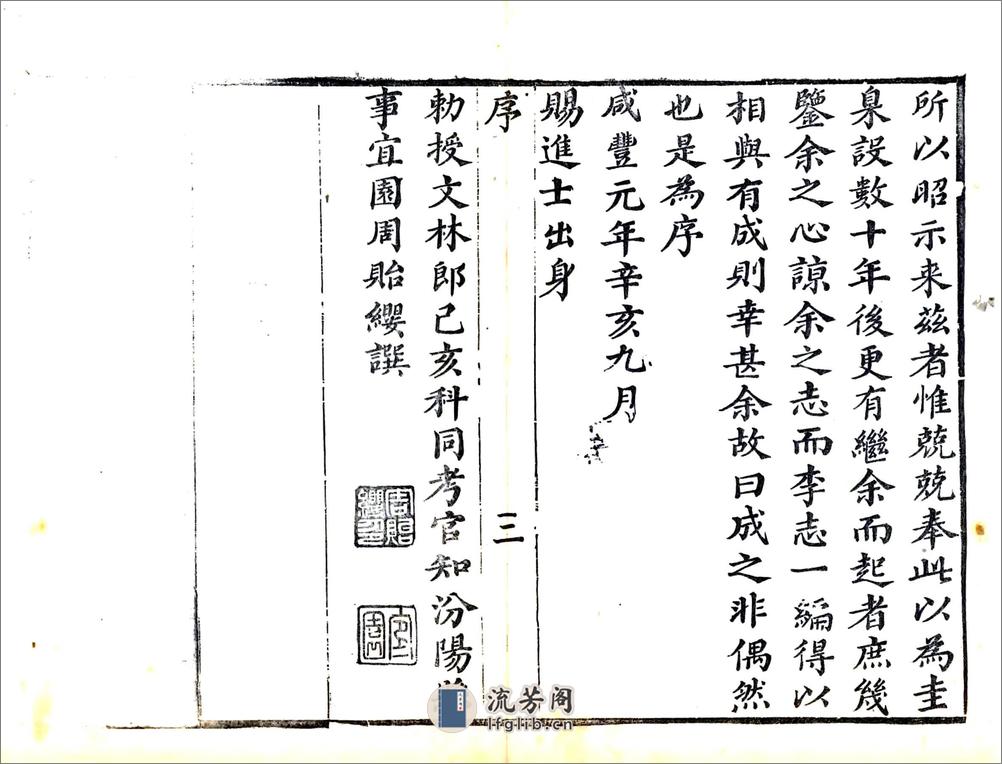 所以昭示来茲者惟兢兢奉此以為圭
臬設數十年後更有繼余而起者庶幾
鑒余之心諒余之志而李志一編得以
相與有成則幸甚余故曰成之非偶然
也是為序
咸豐元年辛亥九月
賜進士出身
序
三
勅授文林郎己亥科同考官知汾陽
事宜園周貽纓譔
周貽纓印
宜園
流芳阁
lfglib.cn